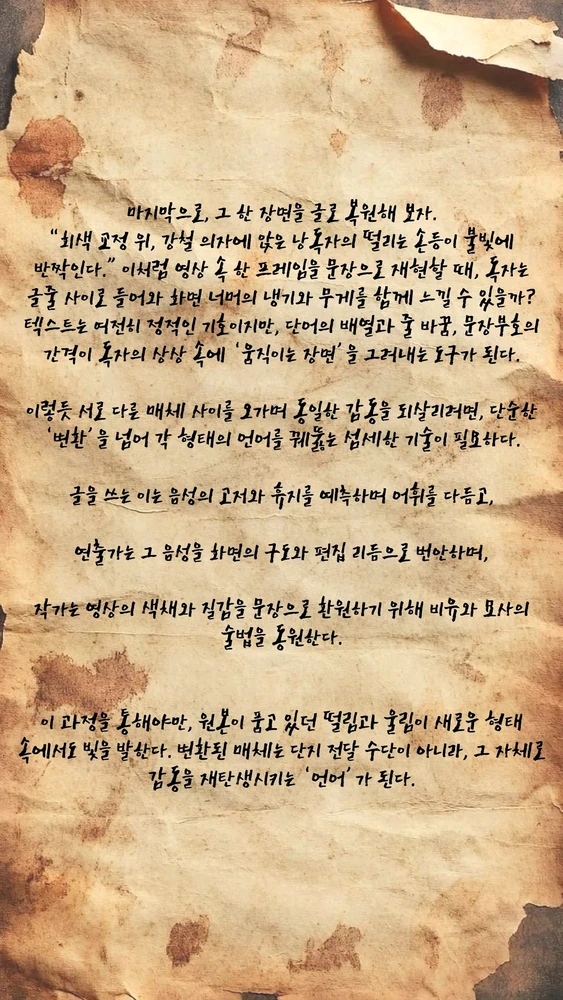 마지막으로, 그 한 장면을 글로 복원해 보자.
“회색 교정 위, 강철 의자에 앉은 낭독자의 떨리는 손등이 불빛에
반짝인다.” 이처럼 영상 속 한 프레임을 문장으로 재현할 때, 독자는
글줄 사이로 들어와 화면 너머의 냉기와 무게를 함께 느낄 수 있을까?
텍스트는 여전히 정적인 기호이지만, 단어의 배열과 줄 바꿈, 문장부호의
간격이 독자의 상상 속에 ‘움직이는 장면’을 그려내는 도구가 된다.
이렇듯 서로 다른 매체 사이를 오가며 동일한 감동을 되살리려면, 단순한
‘변환’을 넘어 각 형태의 언어를 꿰뚫는 섬세한 기술이 필요하다.
글을 쓰는 이는 음성의 고저와 휴지를 예측하며 어휘를 다듬고,
연출가는 그 음성을 화면의 구도와 편집 리듬으로 번안하며,
작가는 영상의 색채와 질감을 문장으로 환원하기 위해 비유와 묘사의
술법을 동원한다.
이 과정을 통해야만, 원본이 품고 있던 떨림과 울림이 새로운 형태
속에서도 빛을 발한다. 변환된 매체는 단지 전달 수단이 아니라, 그 자체로
감동을 재탄생시키는 ‘언어’가 된다.